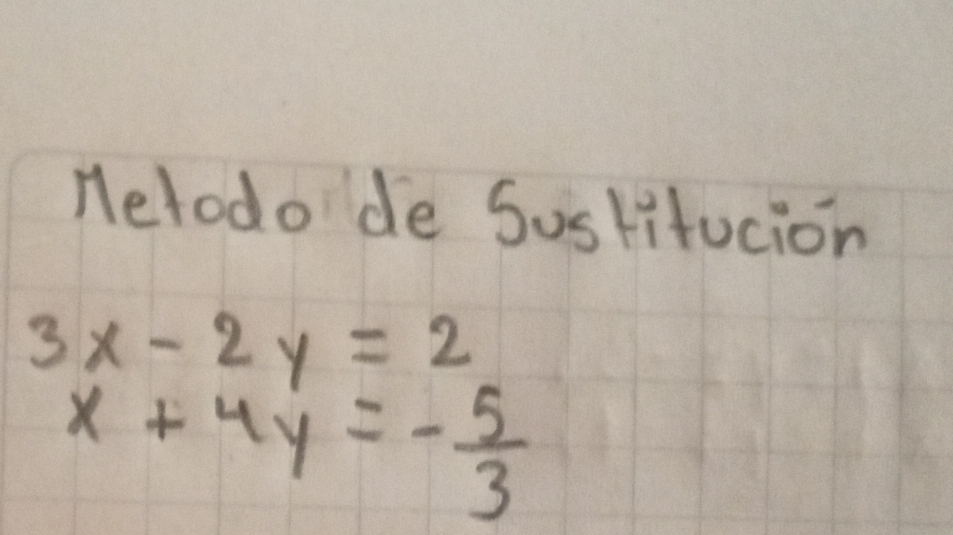 Metodo de Sustitución
3x - 2y = 2
x + 4y = - 5/3